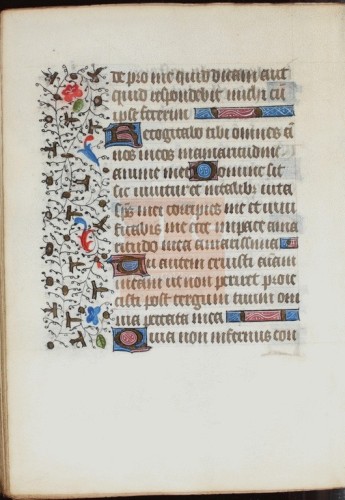 de pro me quid dicam aut
quid respondebit michi cū
ipse fecerim
Recogitabo tibi omnes ā
nos meos in amaritudine
anime mee Domine si
sic vivitur et in talibus vita
spūs mei corripies me et vivi
ficabis me ecce in pace ama
ritudo mea amarissima
Tu autem eruisti aīam
meam ut non periret proie
cisti post tergum tuum om
nia peccata mea
Quia non infernus con